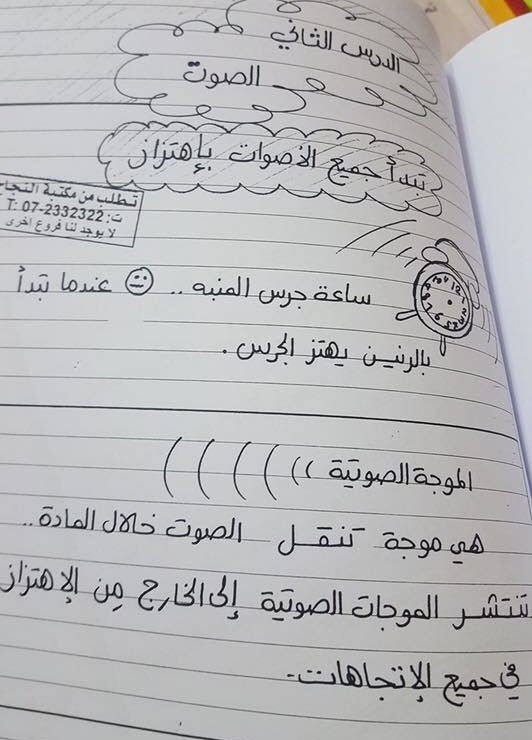 الدرس الثاني
الصوت
تبدأ جميع الأصوات بإهتزاز
تطلب من مكتبة النجاح
ت: 07-2332322 :T
لا يوجد لنا فروع اخرى
ساعة جرس المنبه .. عندما تبدأ
بالرنين يهتز الجرس .
الموجة الصوتية
هي موجة تنقل الصوت خلال المادة ..
تنتشر الموجات الصوتية إلى الخارج من الإهتزاز
في جميع الإتجاهات .-